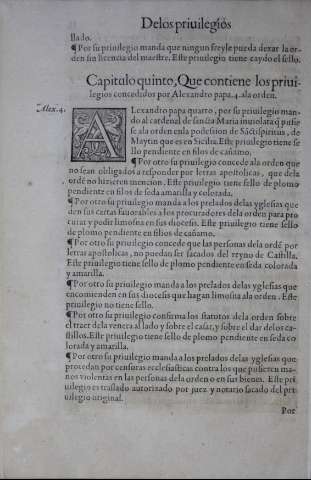 De los priuilegios
llado.
¶Por su priuilegio manda que ningun freyle pueda dexar la or-
den sin licencia del maestre. Este priuilegio tiene caydo el sello.
Capitulo quinto, Que contiene los priui-
legios concedidos por Alexandro papa .4. ala orden.
Alex. 4.
ALexandro papa quarto, por su priuilegio man-
do al cardenal de sancta Maria inuiolata q pusie
se ala orden enla possession de Sãctispiritus, de
Maytin que es en Sicilia. Este priuilegio tiene se
llo pendiente en filos de cañamo.
¶Por otro su priuilegio concede ala orden que
no sean obligados a responder por letras apostolicas, que dela
ordẽ no hizieren mencion. Este priuilegio tiene sello de plomo
pendiente en filos de seda amarilla y colorada.
¶Por otro su priuilegio manda a los prelados delas yglesias que
den sus cartas fauorables a los procuradores dela orden para pro
curar y pedir limosna en sus diocesis. Este priuilegio tiene sello
de plomo pendiente en filos de cañamo.
¶Por otro su priuilegio concede que las personas dela ordẽ por
letras apostolicas, no puedan ser sacados del reyno de Castilla.
Este priuilegio tiene sello de plomo pendiente en seda colorada
y amarilla.
¶Por otro su priuilegio manda a los prelados delas yglesias que
encomienden en sus diocesis que hagan limosna ala orden. Este
priuilegio no tiene sello.
¶Por otro su priuilegio confirma los statutos dela orden sobre
el traer dela venera al lado y sobre el casar, y sobre el dar delos ca-
stillos. Este priuilegio tiene sello de plomo pendiente en seda co
lorada y amarilla.
¶Por otro su priuilegio manda a los prelados delas yglesias que
procedan por censuras ecclesiasticas contra los que pusieren ma-
nos violentas en las personas dela orden o en sus bienes. Este pri
uilegio es traslado autorizado por juez y notario sacado del pri-
uilegio original.
Por